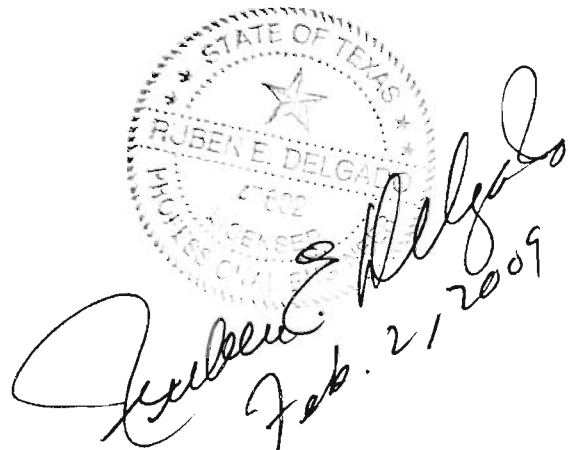 STATE OF TEXAS
RUBEN E. DELGADO
LICENSED
PROFESSIONAL
Ruben E. Delgado
Feb. 2, 2009